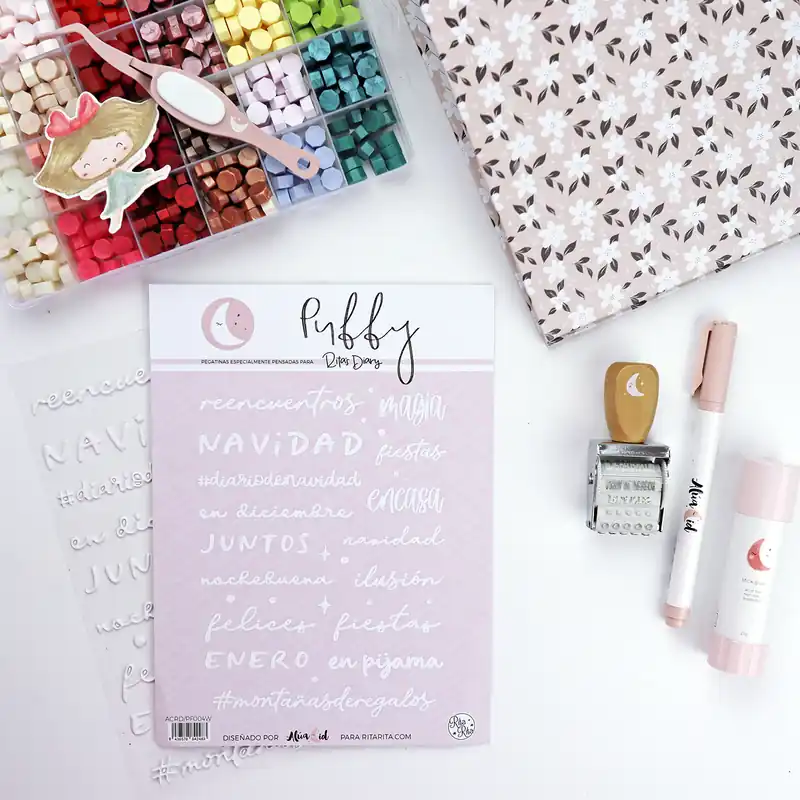 Puffy
PEGATINAS ESPECIALMENTE PENSADAS PARA Rita's Diary
reencuentros magia
NAViDAD fiestas
#diariodenavidad
en diciembre encasa
JUNTOS navidad
nochebuena ilusión
felices fiestas
ENERO en pijama
#montañasderegalos
ACRD/PF004W
DISEÑADO POR Alúa Cid PARA RITARITA.COM
Rita Rita
reencue
NAVi
#diariod
en dic
JUN
noche
fe
E
#monta
Alúa Cid